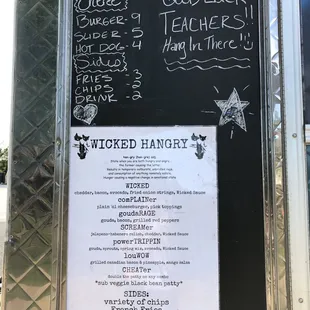 BURGER - 9
SLIDER - 5
HOT DOG - 4
Sides
FRIES - 3
CHIPS - 2
DRINK - 2
TEACHERS!!
Hang In There!
WICKED HANGRY
WICKED
cheddar, bacon, avocado, fried onion strings, Wicked Sauce
comPLAINer
plain 'ol cheeseburger, pick toppings
goudaRAGE
gouda, bacon, grilled red peppers
SCREAMer
jalapeno-habanero relish, cheddar, Wicked Sauce
powerTRIPPIN
gouda, sprouts, spring mix, avocado, Wicked Sauce
louWOW
grilled canadian bacon & pineapple, mango salsa
CHEATer
double the patty on any combo
*sub veggie black bean patty*
SIDES:
variety of chips
French Fries